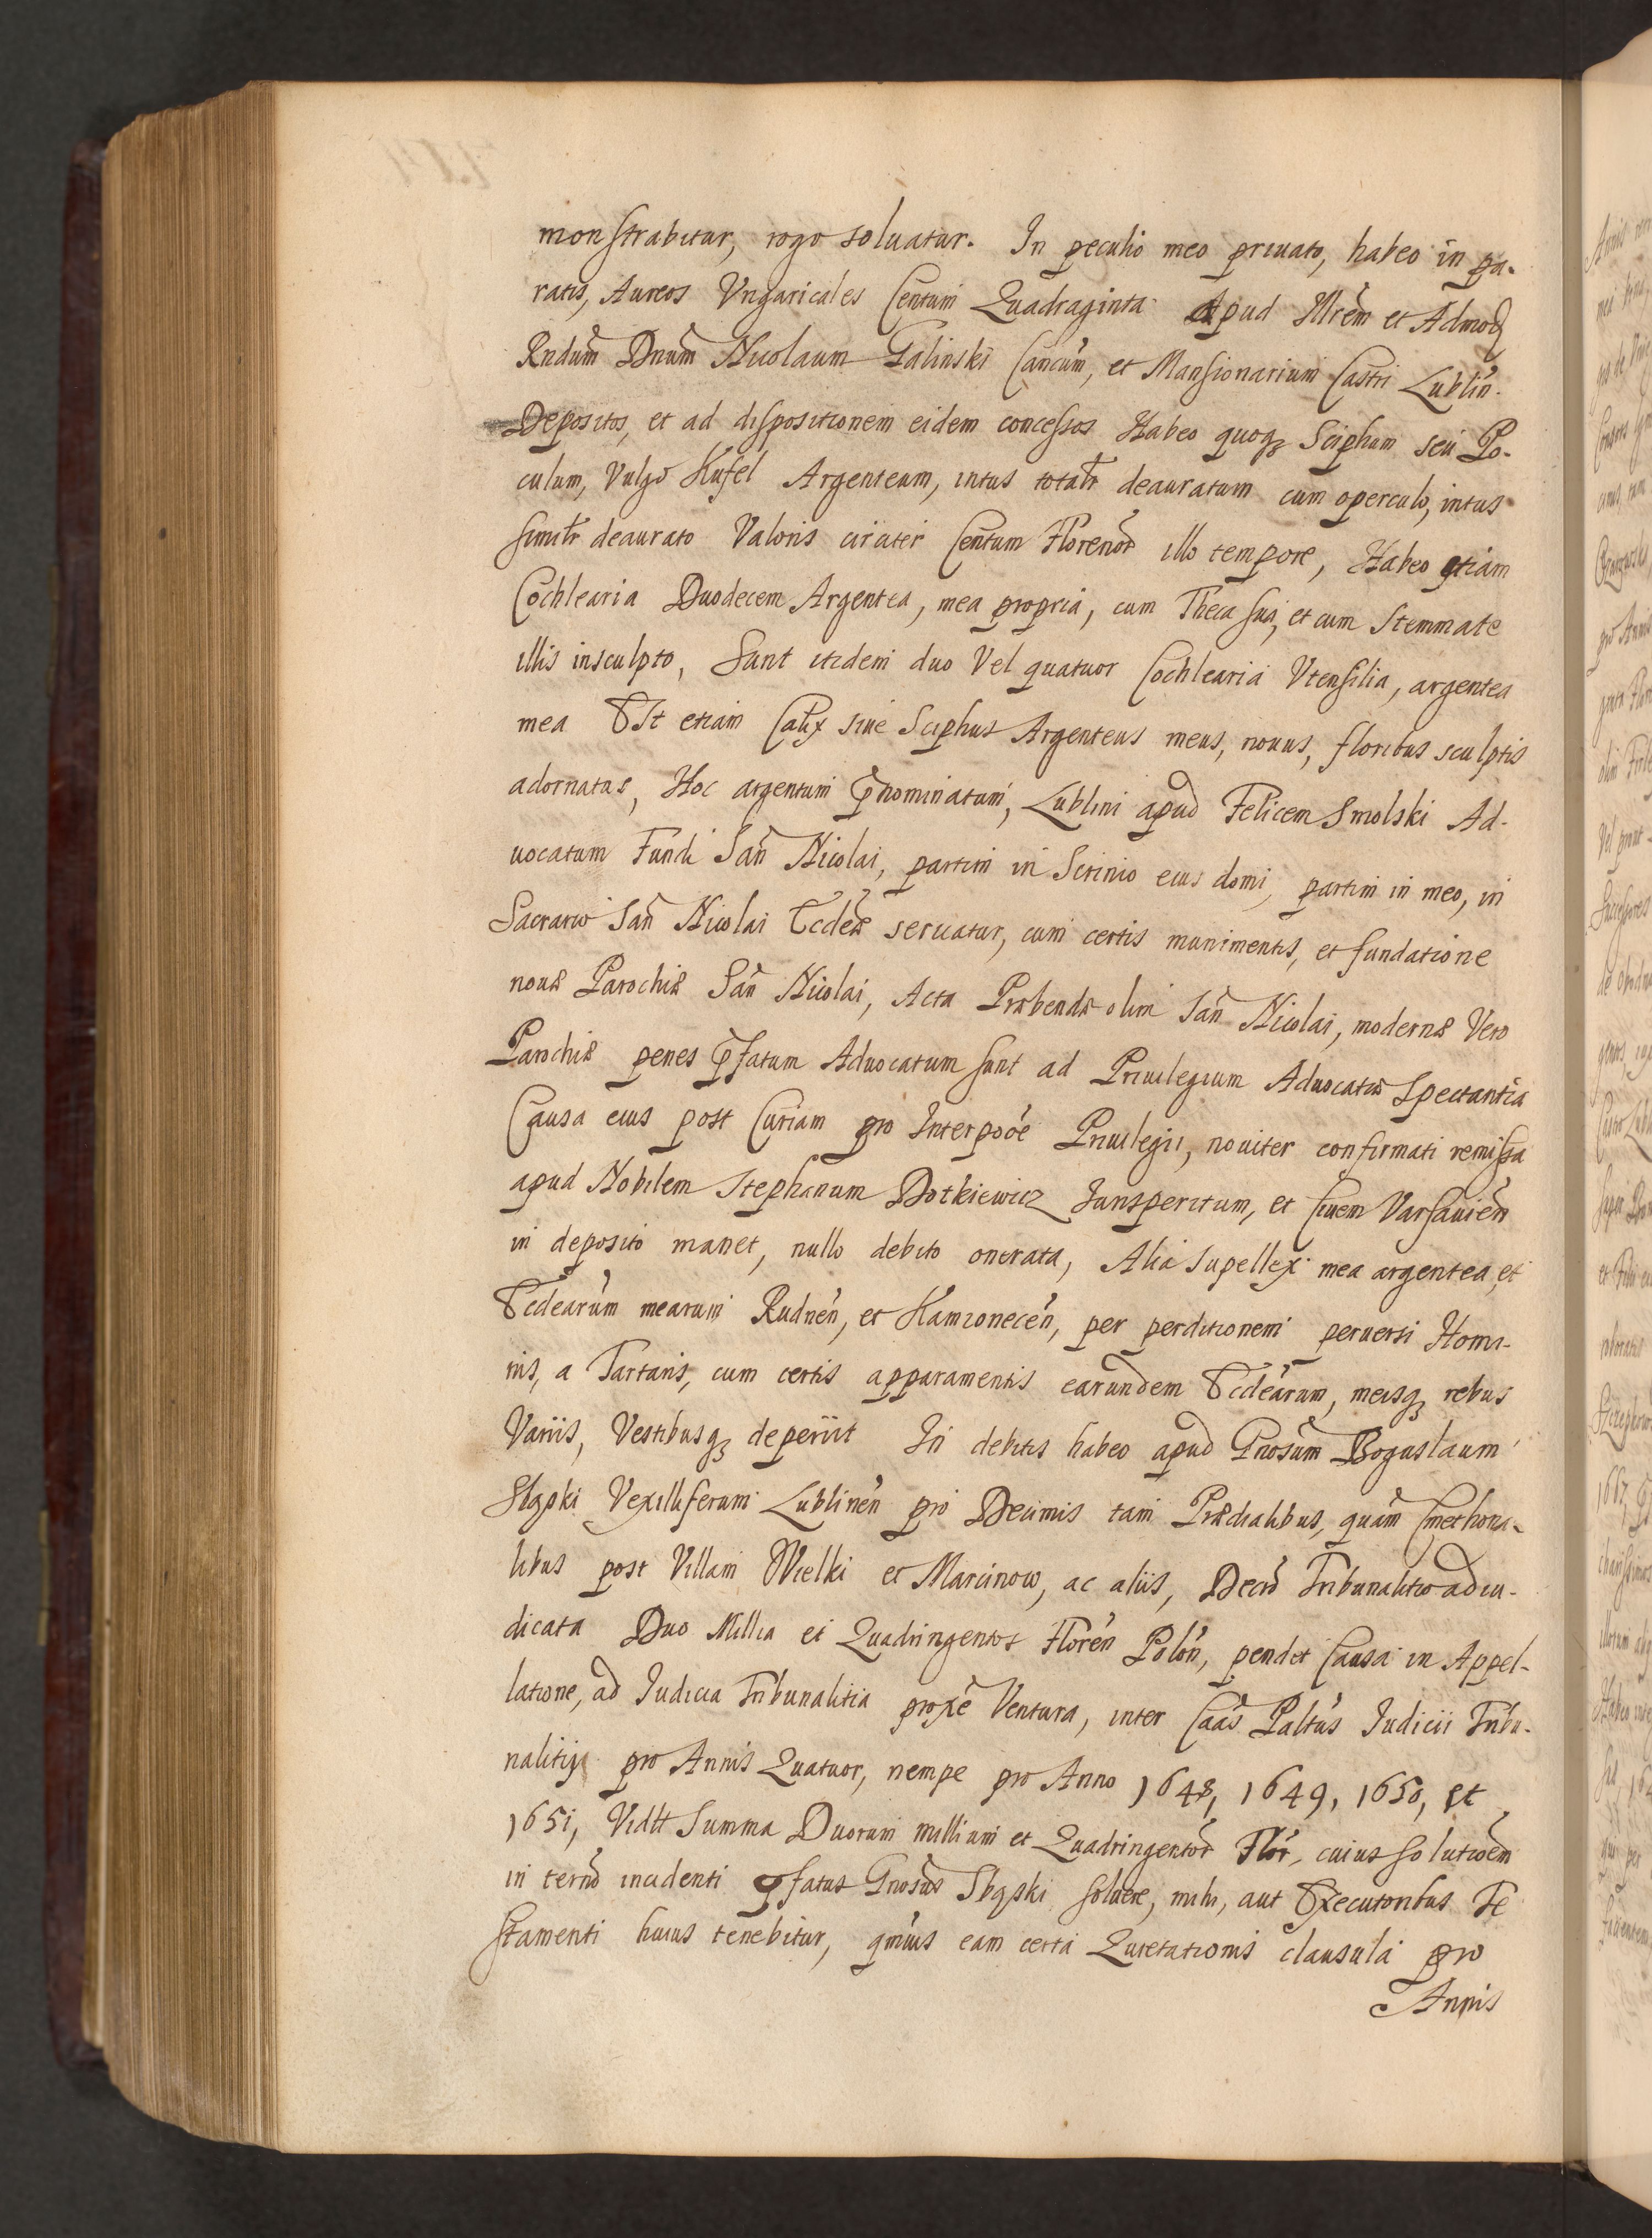 monstrabitur, rogo soluatur. In peculio meo priuato, habeo in pa-
ratis, Aureos Vngaricales Centum Quadraginta Apud Illrem et Admod
Rndum Dnum Nicolaum Galinski Cancum, et Mansionarium Castri Lublin.
Depositos, et ad dispositionem eidem concessos Habeo quoq3 Sciphum seu Po-
culum, Vulgo Kufel Argenteum, intus totalr deauratum cum operculo, intus
similr deaurato Valoris circiter Centum Florenor illo tempore, Habeo etiam
Cochlearia Duodecem Argentea, mea propria, cum Theca sua, et cum Stemmate
illis insculpto, Sunt itidem duo Vel quatuor Cochlearia Vtensilia, argentea
mea Est etiam Calix siue Sciphus Argenteus meus, nouus, floribus sculptis
adornatus, Hoc argentum pnominatum, Lublini apud Felicem Smolski Ad-
uocatum Fundi San Nicolai, partim in Scrinio eius domi, partim in meo, in
Sacrario San Nicolai Ecclæ seruatur, cum certis munimentis, et fundatione
nouæ Parochiæ San Nicolai, Acta Præbendæ olim San Nicolai, modernæ Vero
Parochiæ penes pfatum Aduocatum sunt ad Priuilegium Aduocatiæ spectantia
Causa eius post Curiam pro Interpoóe Priuilegii, nouiter confirmati remissa
apud Nobilem Stephanum Dotkiewicz Jurisperitum, et Ciuem Varsauien
in deposito manet, nullo debito onerata, Alia supellex mea argentea, et
Ecclearum mearum Rudnen, et Kamionecen, per perditionem peruersi Homi-
nis, a Tartaris, cum certis apparamentis earundem Ecclearum, meisq3 rebus
Variis, Vestibusq3 deperiit In debitis habeo apud Gnosum Boguslaum
Słąpki Vexilliferum Lublinen pro Decimis tam Prædialibus, quam Cmethona-
libus post Villam Wielki et Marcinow, ac aliis, Decto Tribunalitio adiu-
dicata Duo Millia et Quadringentos Floren Polon, pendet Causa in Appel-
latione, ad Iudicia Tribunalitia proxe Ventura, inter Caas Paltus Iudicii Tribu-
nalitij pro Annis Quatuor, nempe pro Anno 1648, 1649, 1650, et
1651, Vidlt Summa Duorum millium et Quadringentor Flor, cuius solutioem
in termo incidenti pfatus Gnosus Sbąski soluere, mihi, aut Executoribus Te
stamenti huius tenebitur, qmius eam certa Quietationis clausula pro
Annis